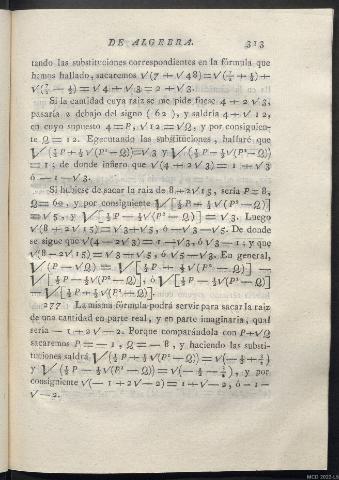 DE ALGEBRA. 313
tando las substituciones correspondientes en la fórmula que
hemos hallado, sacaremos √(7 + √48) = √(7/2 + 1/2) +
√(7/2 − 1/2) = √4 + √3 = 2 + √3.
Si la cantidad cuya raiz se me pide fuese 4 + 2√3,
pasaría 2 debajo del signo (62), y saldría 4 + √12,
en cuyo supuesto 4 = P, √12 = √Q, y por consiguien-
te Q = 12. Egecutando las substituciones, hallaré que
√(½P + ½√(P² − Q)) = √3 y √(½P − ½√(P² − Q))
= 1; de donde infiero que √(4 + 2√3) = 1 + √3
ó − 1 − √3.
Si hubiese de sacar la raiz de 8 + 2√15, seria P = 8,
Q = 60, y por consiguiente √[½P + ½√(P² − Q)]
= √5, y √[½P − ½√(P² − Q)] = √3. Luego
√(8 + 2√15) = √3 + √5, ó − √3 − √5. De donde
se sigue que √(4 − 2√3) = 1 − √3, ó √3 − 1; y que
√(8 − 2√15) = √3 − √5, ó √5 − √3. En general,
√(P − √Q) = √[½P + ½√(P² − Q)] −
√[½P − ½√(P² − Q)], ó √[½P − ½√(P² − Q)]
− √[½P + ½√(P² − Q)].
277 La misma fórmula podrá servir para sacar la raiz
de una cantidad en parte real, y en parte imaginaria, qual
seria − 1 + 2√−2. Porque comparándola con P + √Q
sacaremos P = − 1, Q = − 8, y haciendo las substi-
tuciones saldrá √(½P + ½√(P² − Q)) = √(−½ + 3/2)
y √(½P − ½√(P² − Q)) = √(−½ − 3/2), y por
consiguiente √(− 1 + 2√−2) = 1 + √−2, ó − 1 −
√−2.
MCD 2022-L5